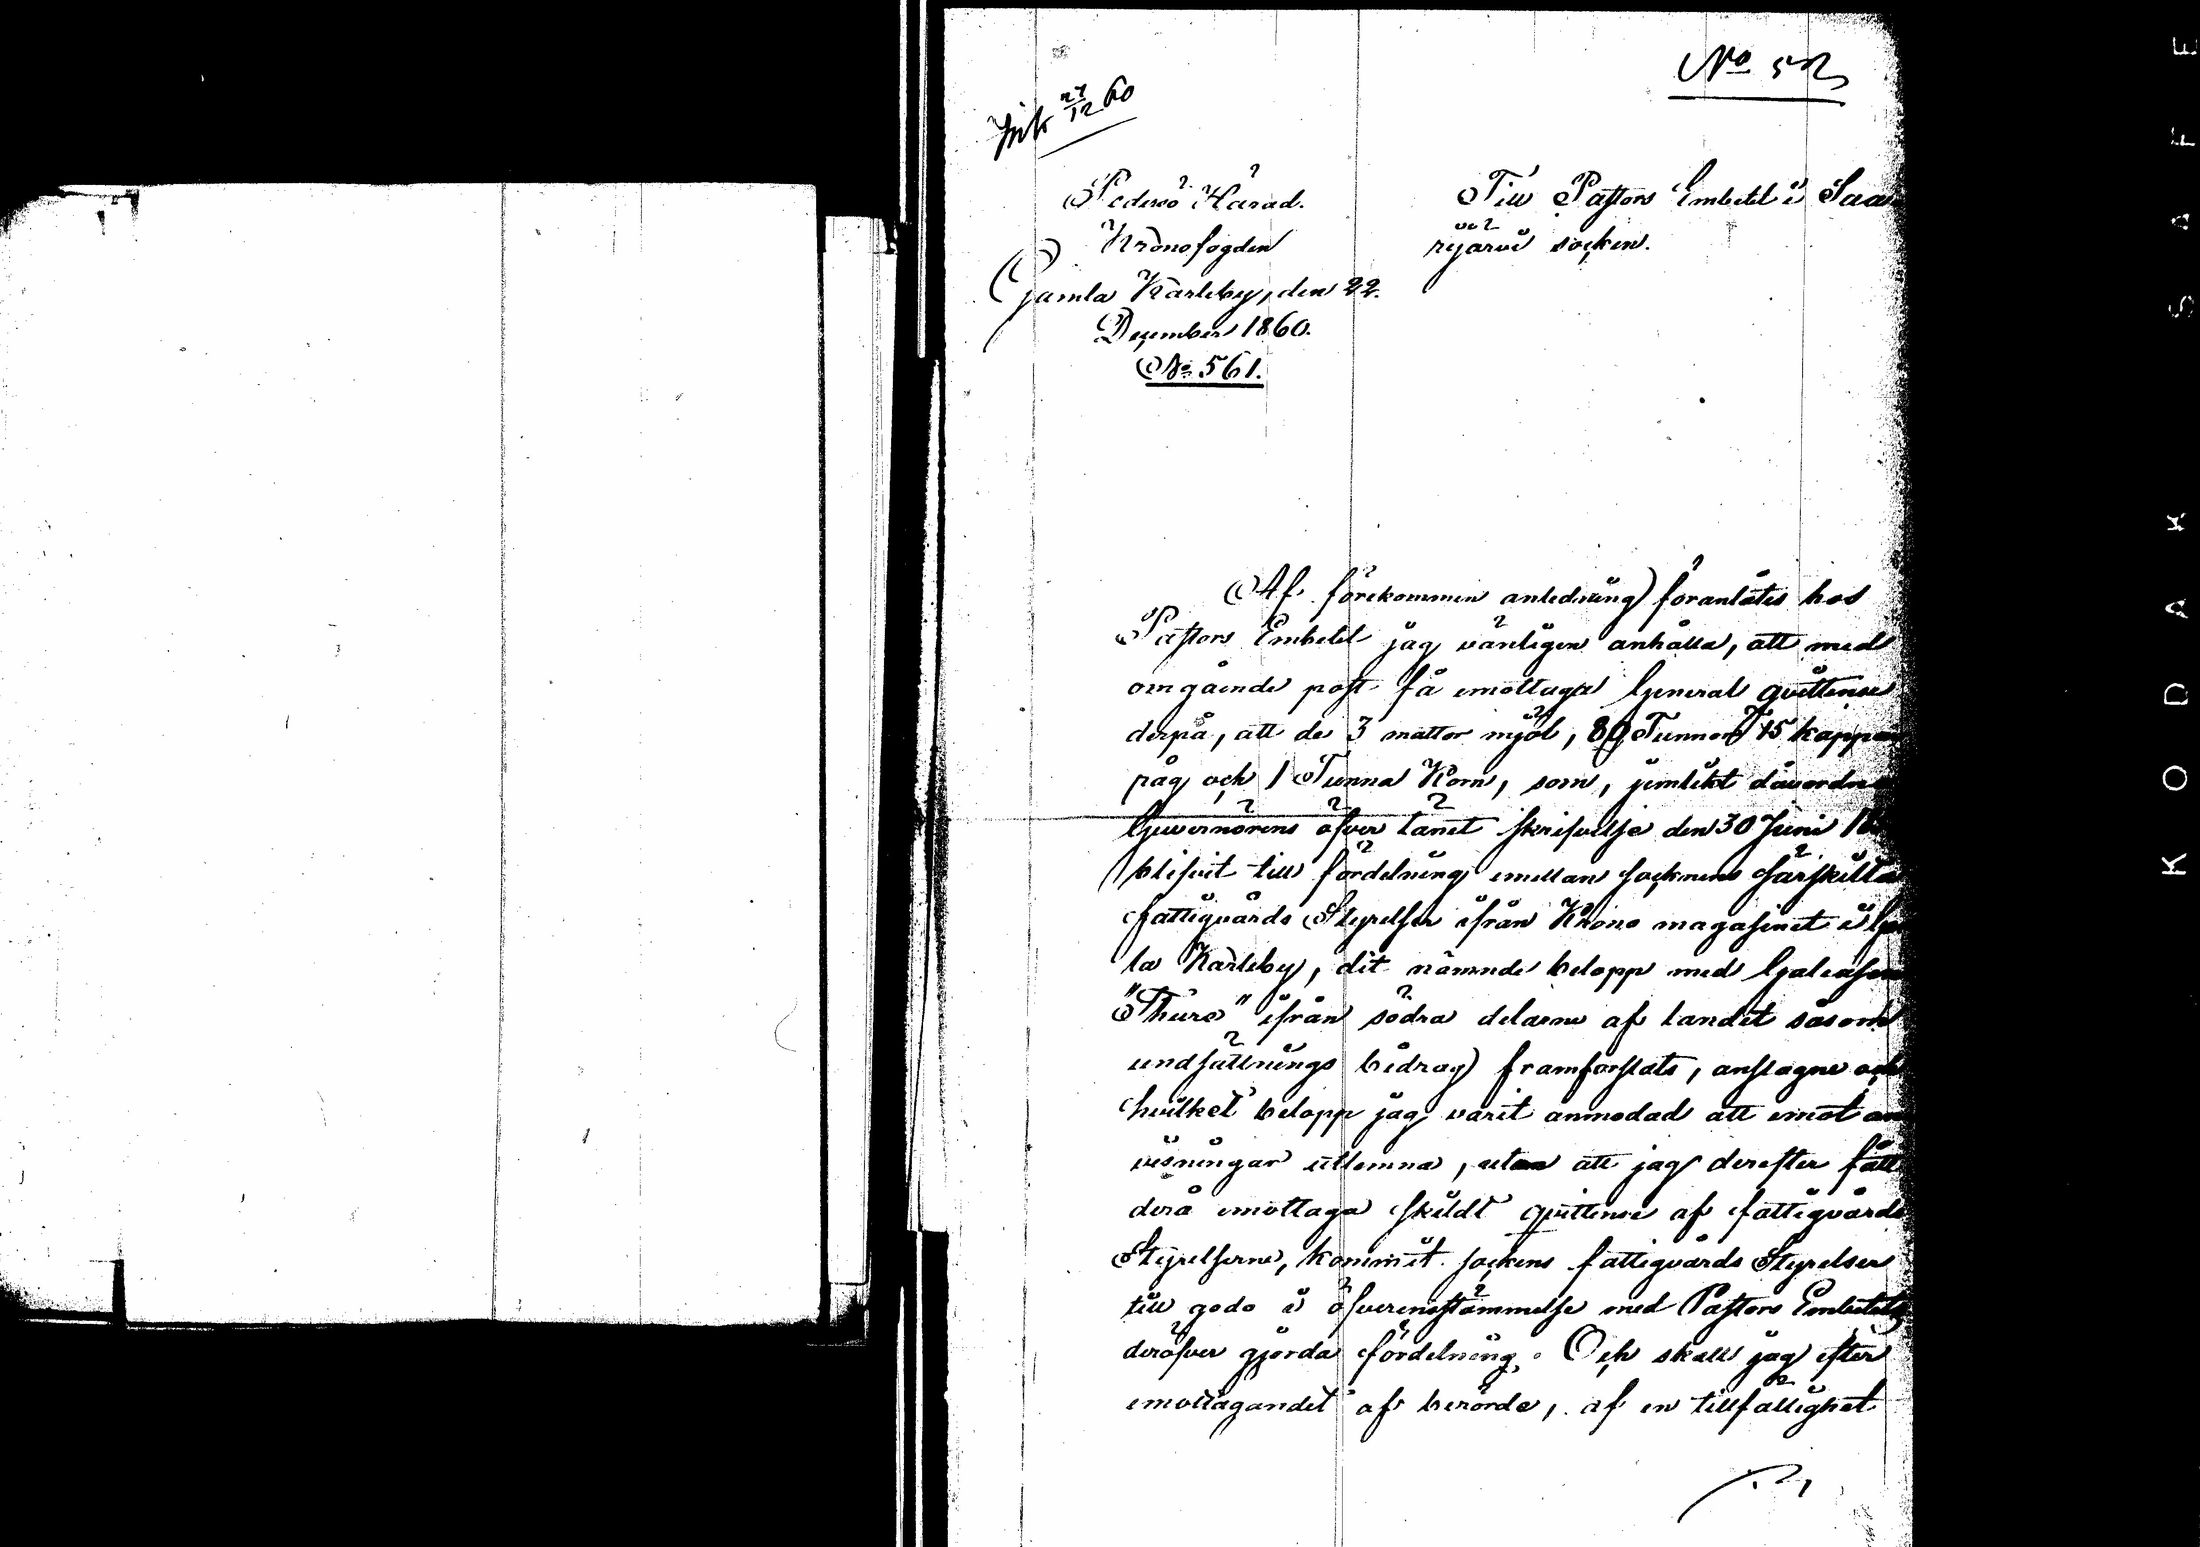 No 52
Ink 27/12 60
Pedersö Härad.
Kronofogden
Gamla Karleby, den 22.
December 1860.
No 561.
Till Pastors Embetet i Saa
rijärvi socken.
Af förekommen anledning föranlåtes hos
Pastors Embetet jag vänligen anhålla, att med
omgående post få emottaga General quittense
derpå, att de 3 mattor mjöl, 80 Tunnor 15 kappar
råg och 1 Tunna Korn, som, jemlikt
Guvernörens öfver länet skrifvelse den 30 Juni 18
blifvit till fördelning emellan socknens särskilta
fattigvårds Styrelser ifrån Krono magasinet i Ga
la Karleby, dit nämnde belopp med Galeasen
"Thure" ifrån södra delarne af landet såsom
undsättnings bidrag framforslats, anslagne och
hvilket belopp jag varit anmodad att emot an
visningar utlemna, utan att jag derefter fått
derå emottaga skildt quittense af fattigvårds
Styrelserne, kommit sockens fattigvårds Styrelser
till godo i öfverensstämmelse med Pastors Embetets
deröfver gjorda fördelning. Och skall jag efter
emottagandet af berörde, af en tillfällighet